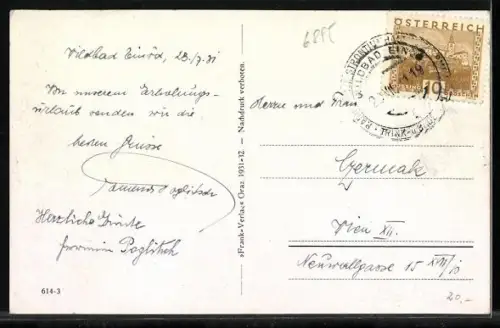 Wildbad Einöd, 23./7.31
Von unserem Erholungs-
urlaub senden wir die
besten Grüsse
Poglitsch
Herzliche Grüsse
Poglitsch
614-3
»Frank«-Verlag« Graz 1931-12 – Nachdruck verboten.
ÖSTERREICH
WILDBAD EINÖD
Herrn und Frau
Czermak
Wien XII.
15
20.-